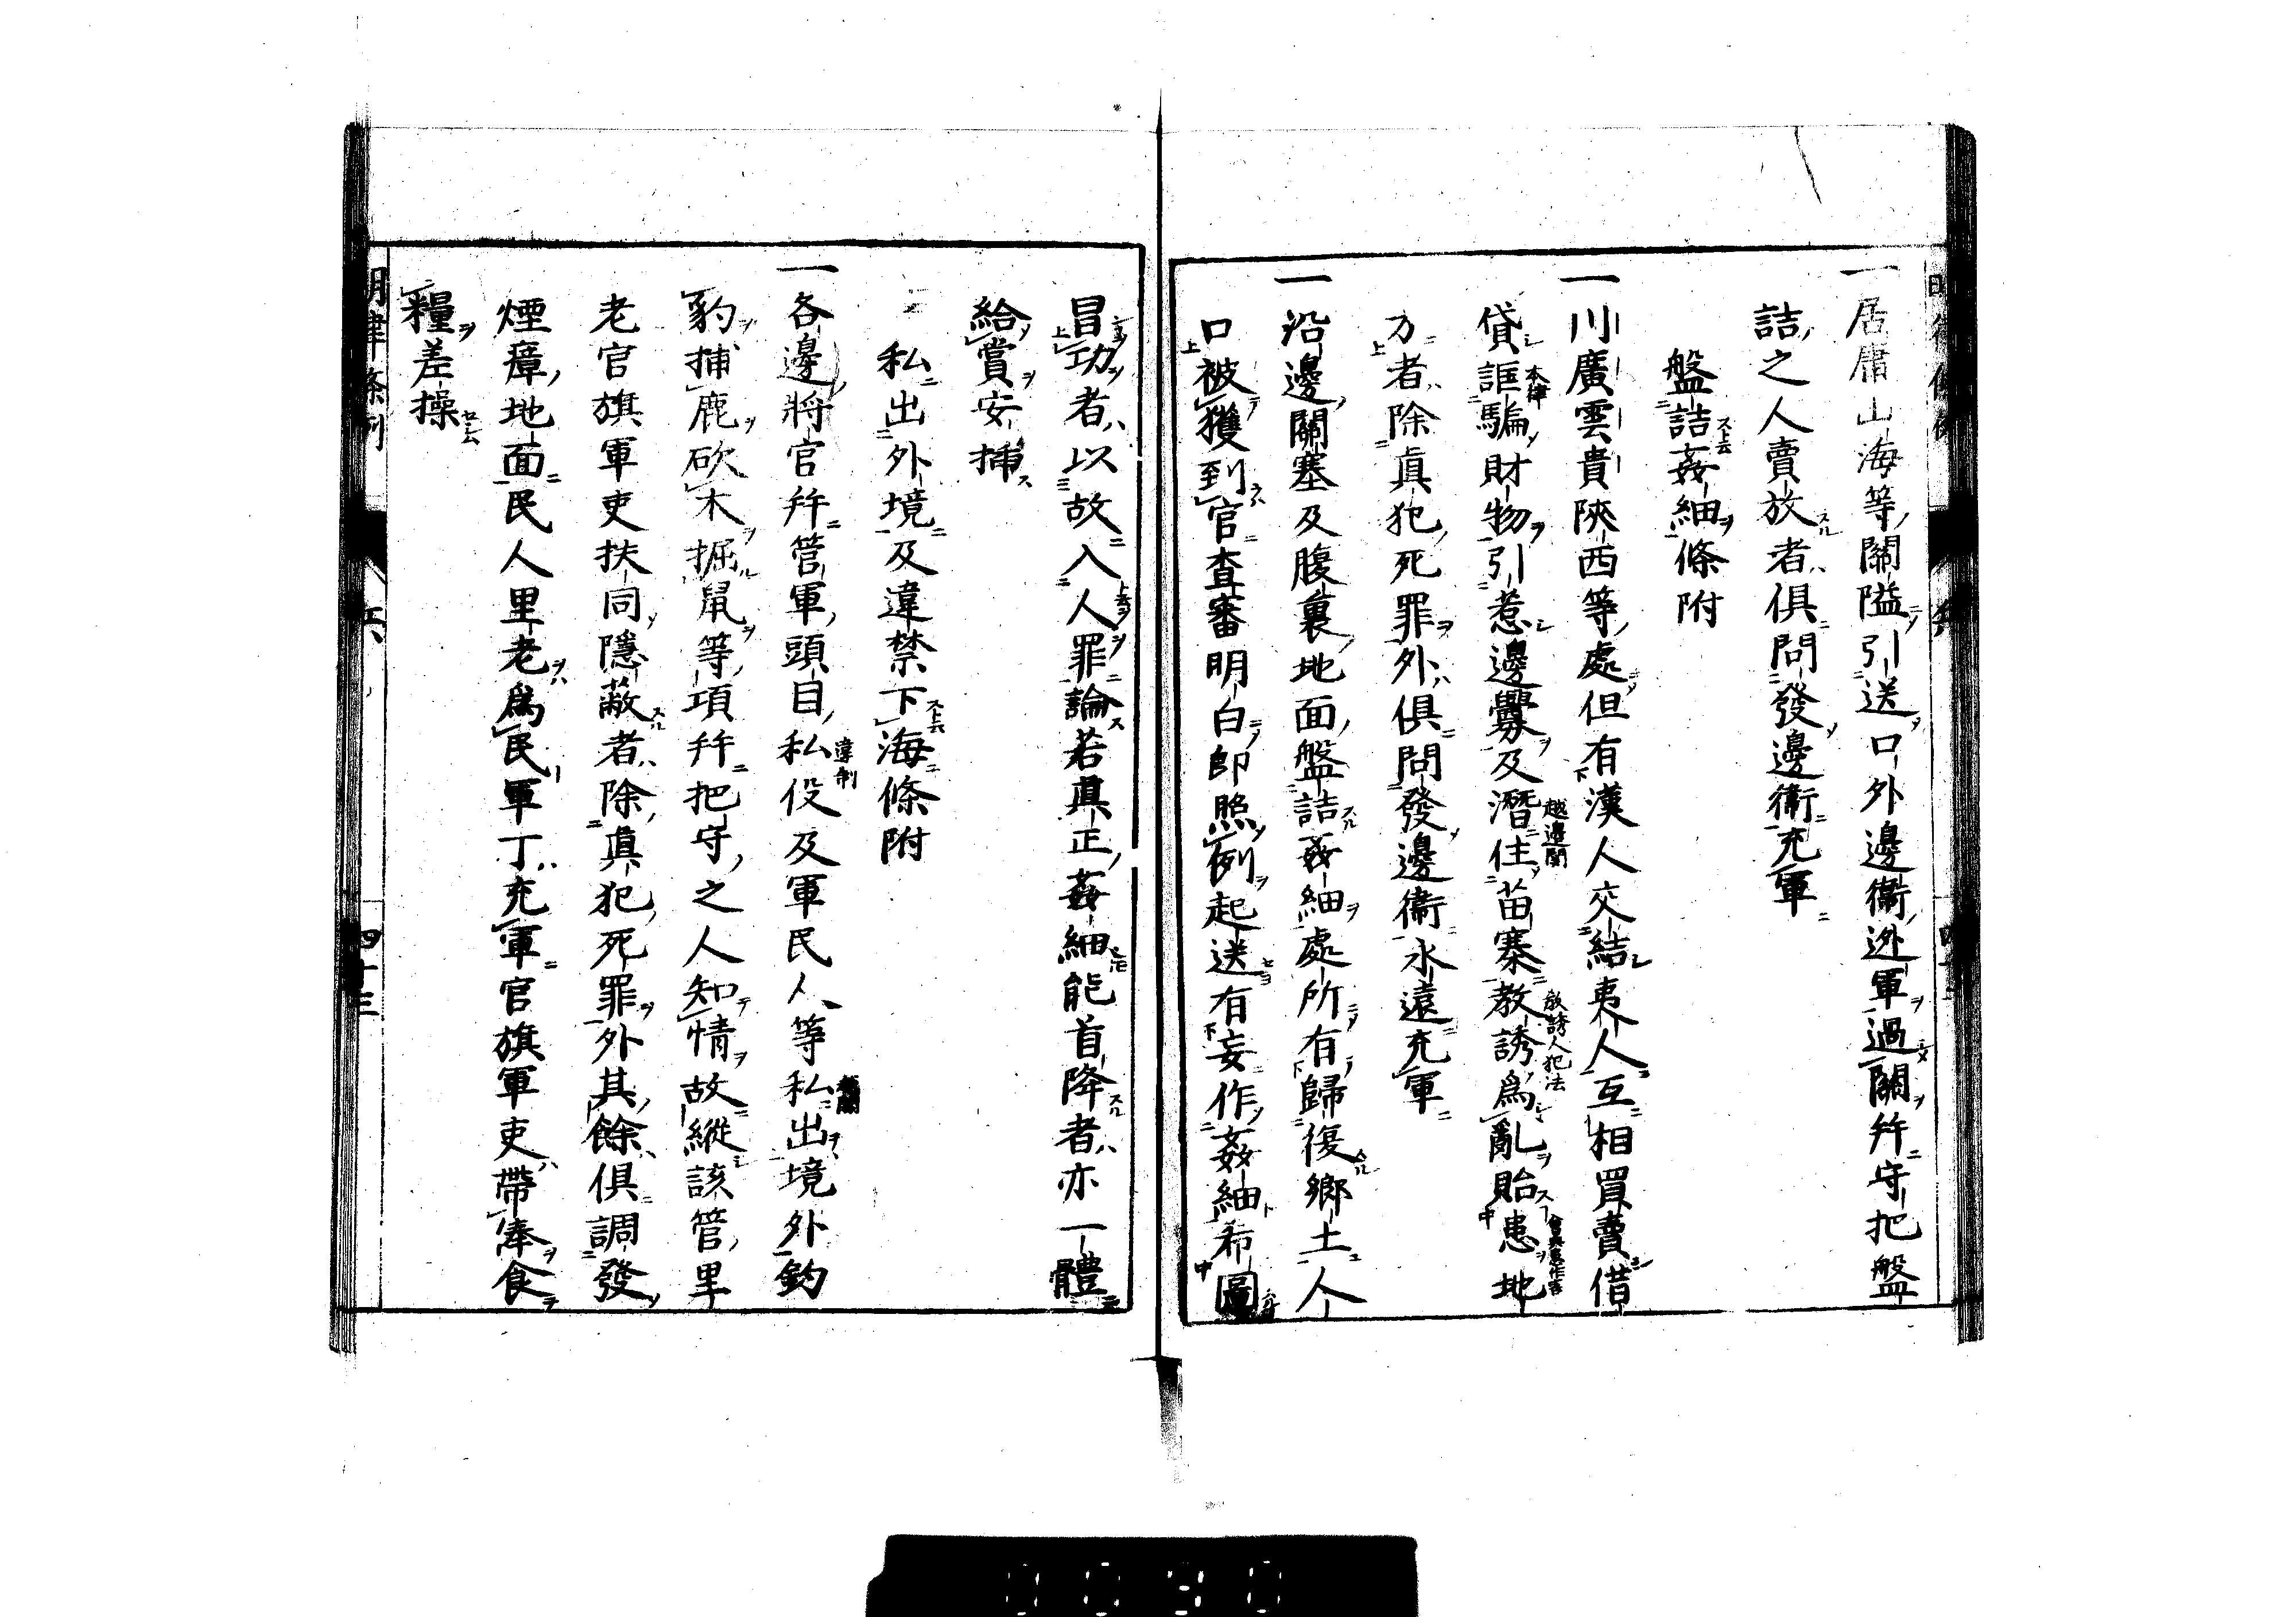 一居庸山海等關隘引送口外邊衞逃軍過關幷守把盤
詰之人賣放者俱問發邊衞充軍
盤詰姦細條附
一川廣雲貴陝西等處但有漢人交結夷人互相買賣借
貸誆騙財物引惹邊釁及潛住苗寨教誘爲亂貽患地
本律
越邊關
教誘人犯法
方者除眞犯死罪外俱問發邊衞永遠充軍
一沿邊關塞及腹裏地面盤詰姦細處所有歸復鄉土人
口被獲到官査審明白卽照例起送有妄作姦細希圖
冒功者以故入人罪論若眞正姦細能首降者亦一體
給賞安揷
私出外境及違禁下海條附
一各邊將官幷管軍頭目私役及軍民人等私出境外釣
違制
豹捕鹿砍木掘鼠等項幷把守之人知情故縱該管里
老官旗軍吏扶同隱蔽者除眞犯死罪外其餘俱調發
煙瘴地面民人里老爲民軍丁充軍官旗軍吏帶俸食
糧差操
明律條例
四十三